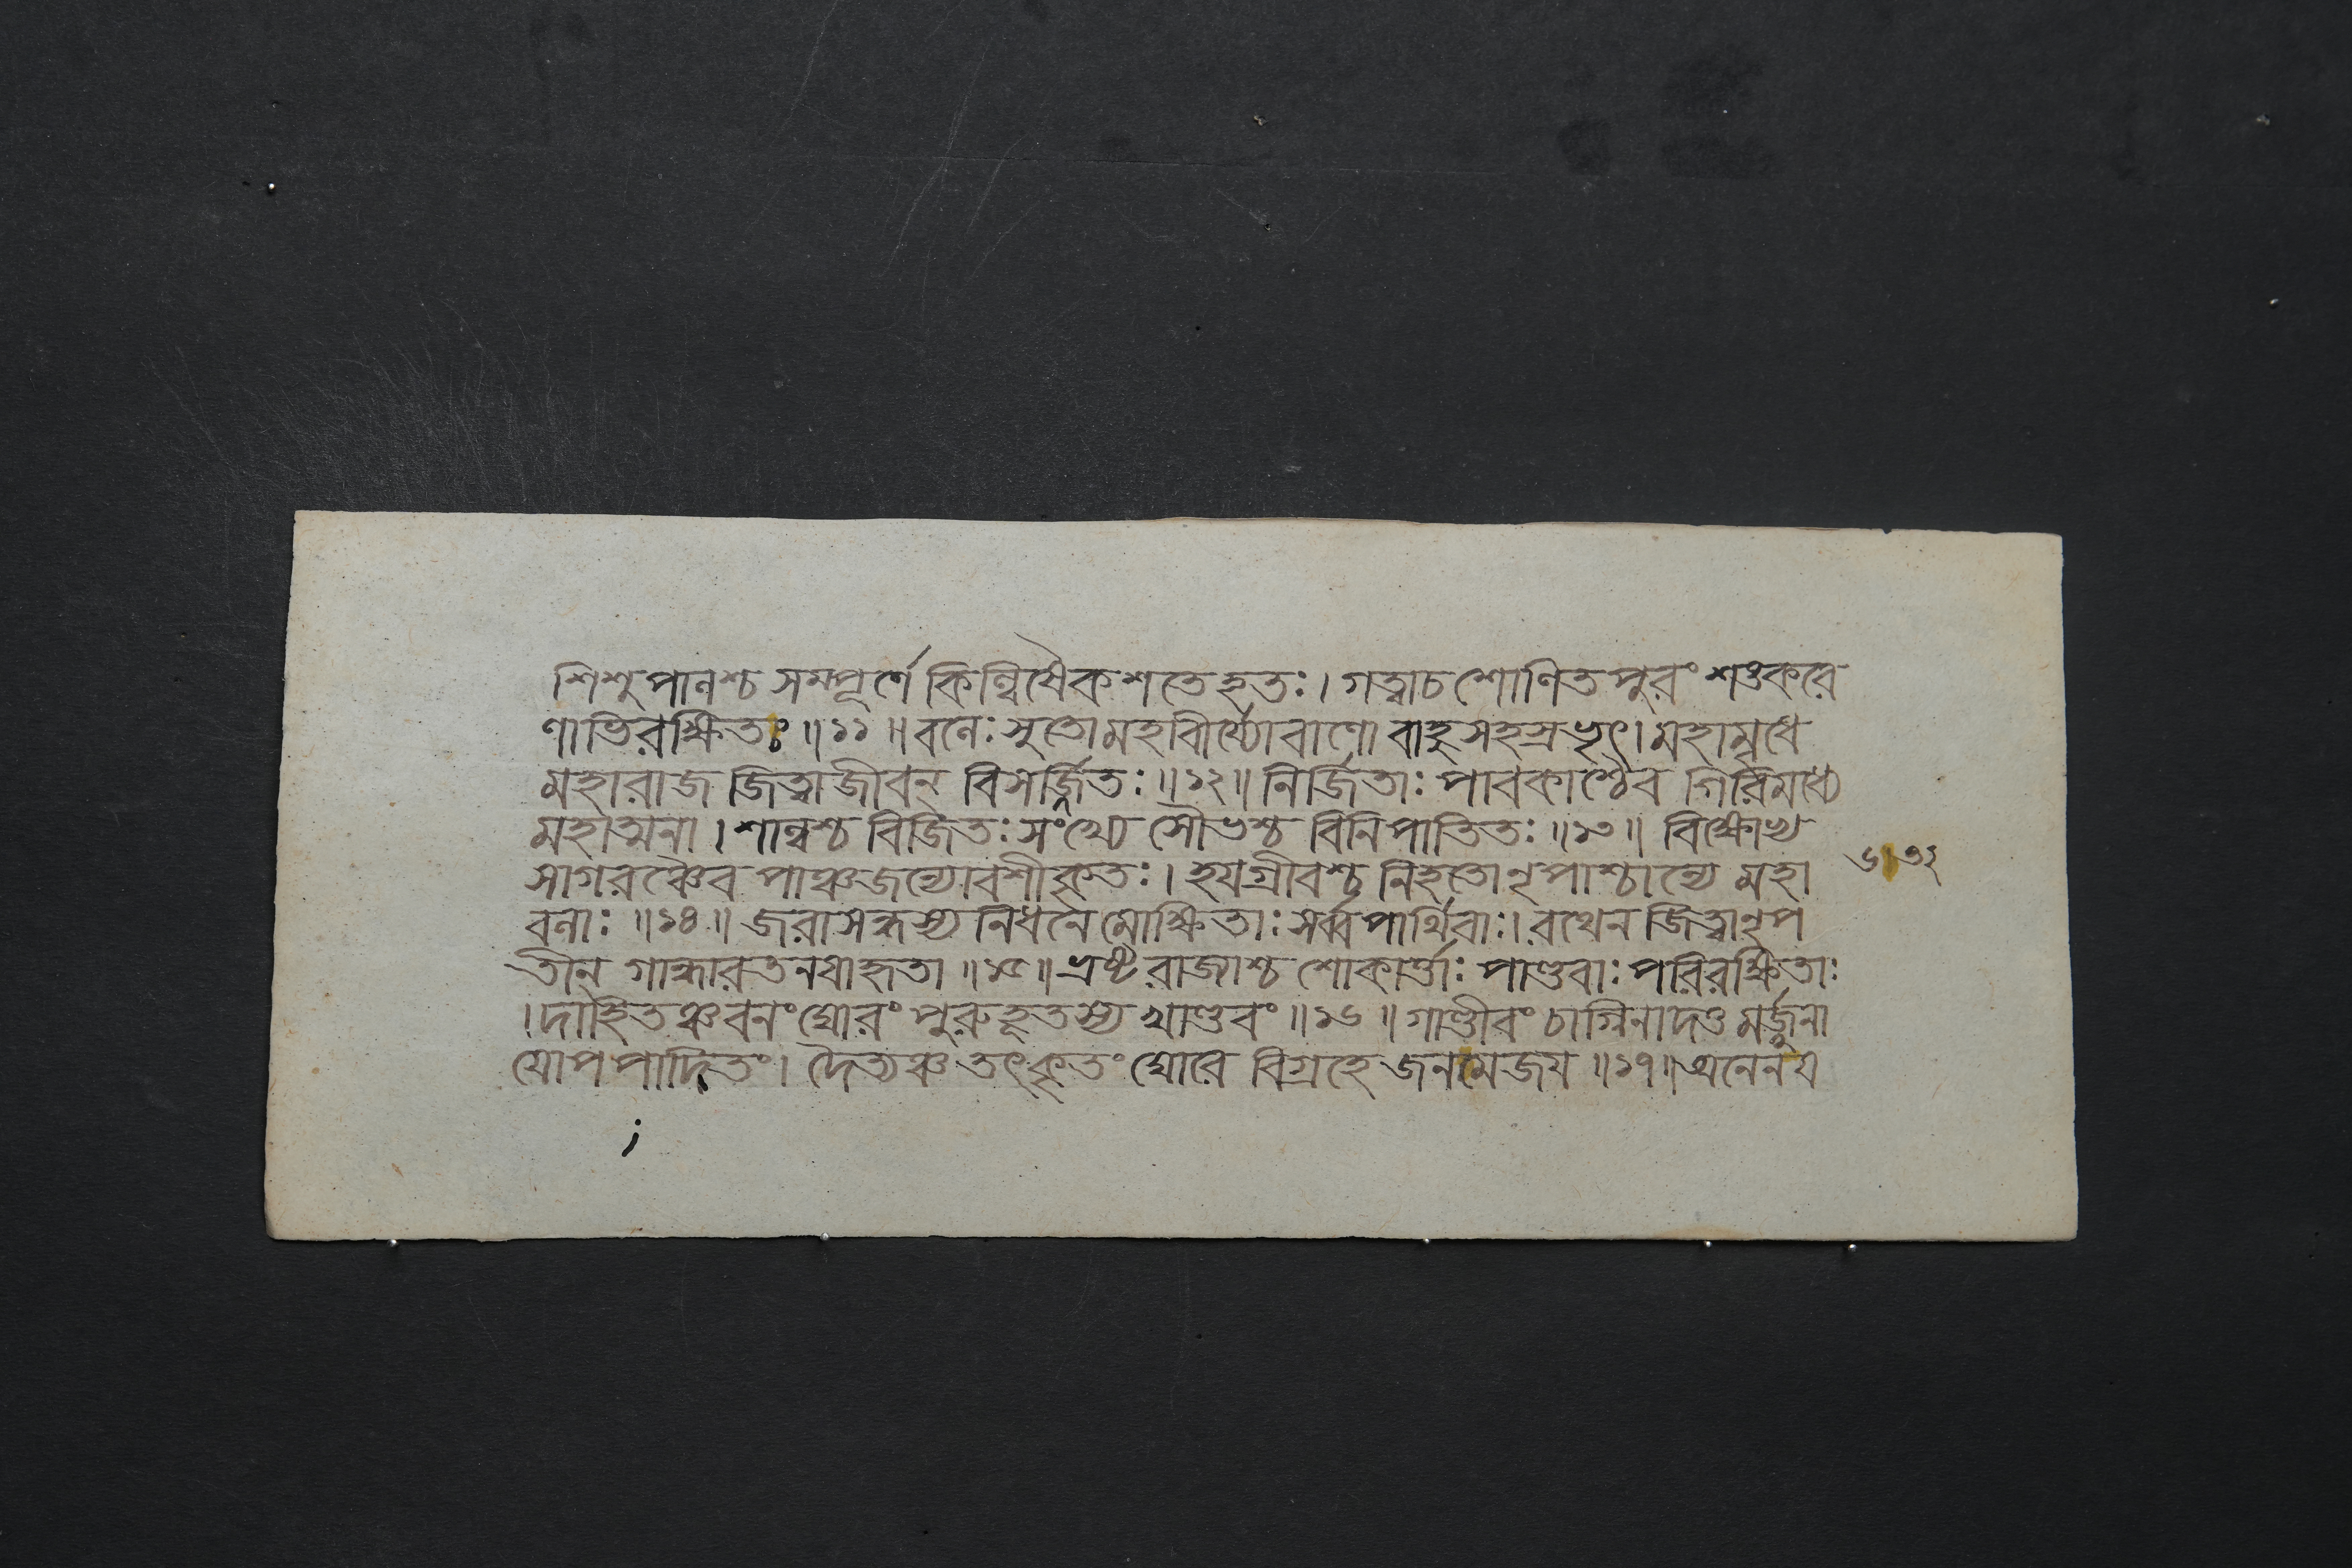 শিশুপালশ্চ সম্পূর্ণে কিল্বিষৈকশতে হতঃ। গত্বাচ শোণিতপুরং শঙ্করে
ণাভিরক্ষিতং ॥১১॥ বলেঃ সুতো মহাবীর্য্যো বাণো বাহুসহস্রভৃৎ। মহামৃধে
মহারাজ জিত্বা জীবন্ বিসর্জ্জিতঃ ॥১২॥ নির্জিতাঃ পাবকাশ্চৈব গিরিমধ্যে
মহাত্মনা। শাল্বশ্চ বিজিতঃ সংখ্যে সৌভশ্চ বিনিপাতিতঃ ॥১৩॥ বিক্ষোভ্য
সাগরঞ্চৈব পাঞ্চজন্যোবশীকৃতঃ। হয়গ্রীবশ্চ নিহতো নৃপাশ্চান্যে মহা
বলাঃ ॥১৪॥ জরাসন্ধস্য নিধনে মোক্ষিতাঃ সর্ব্বপার্থিবাঃ। রথেন জিত্বা নৃপ
তীন্ গান্ধারতনয়াহৃতা ॥১৫॥ ভ্রষ্টরাজ্যাশ্চ শোকার্ত্তাঃ পাণ্ডবাঃ পরিরক্ষিতাঃ
।দাহিতঞ্চ বনং ঘোরং পুরুহূতস্য খাণ্ডবং ॥১৬॥ গাণ্ডীবং চাগ্নিনাদত্তমর্জ্জুনা
য়োপপাদিতং। দৈত্যঞ্চ তৎকৃতং ঘোরে বিগ্রহে জনমেজয় ॥১৭॥ অনেনয